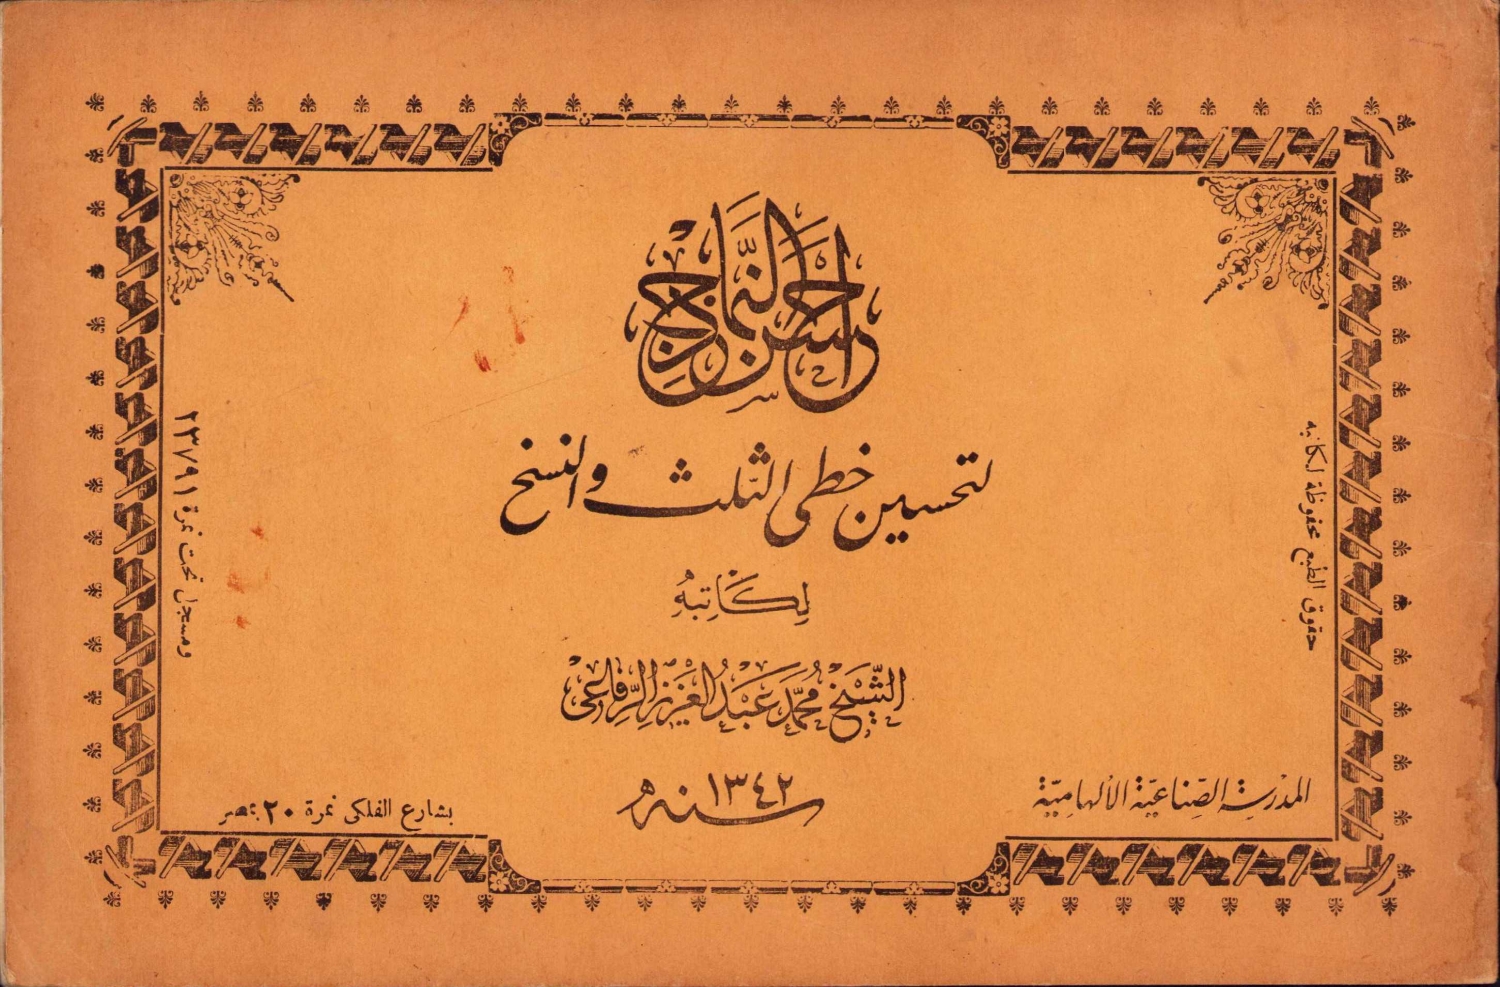 احسن النماذج
لتحسين خطى الثلث والنسخ
لكاتبه
الشيخ محمد عبد العزيز الرفاعى
سنه ١٣٤٢
المدرسة الصناعية الالهامية
بشارع الفلكى نمرة ٢٠ بمصر
حقوق الطبع محفوظة لكاتبه
ومسجل تحت نمرة ٢٣٧٩١